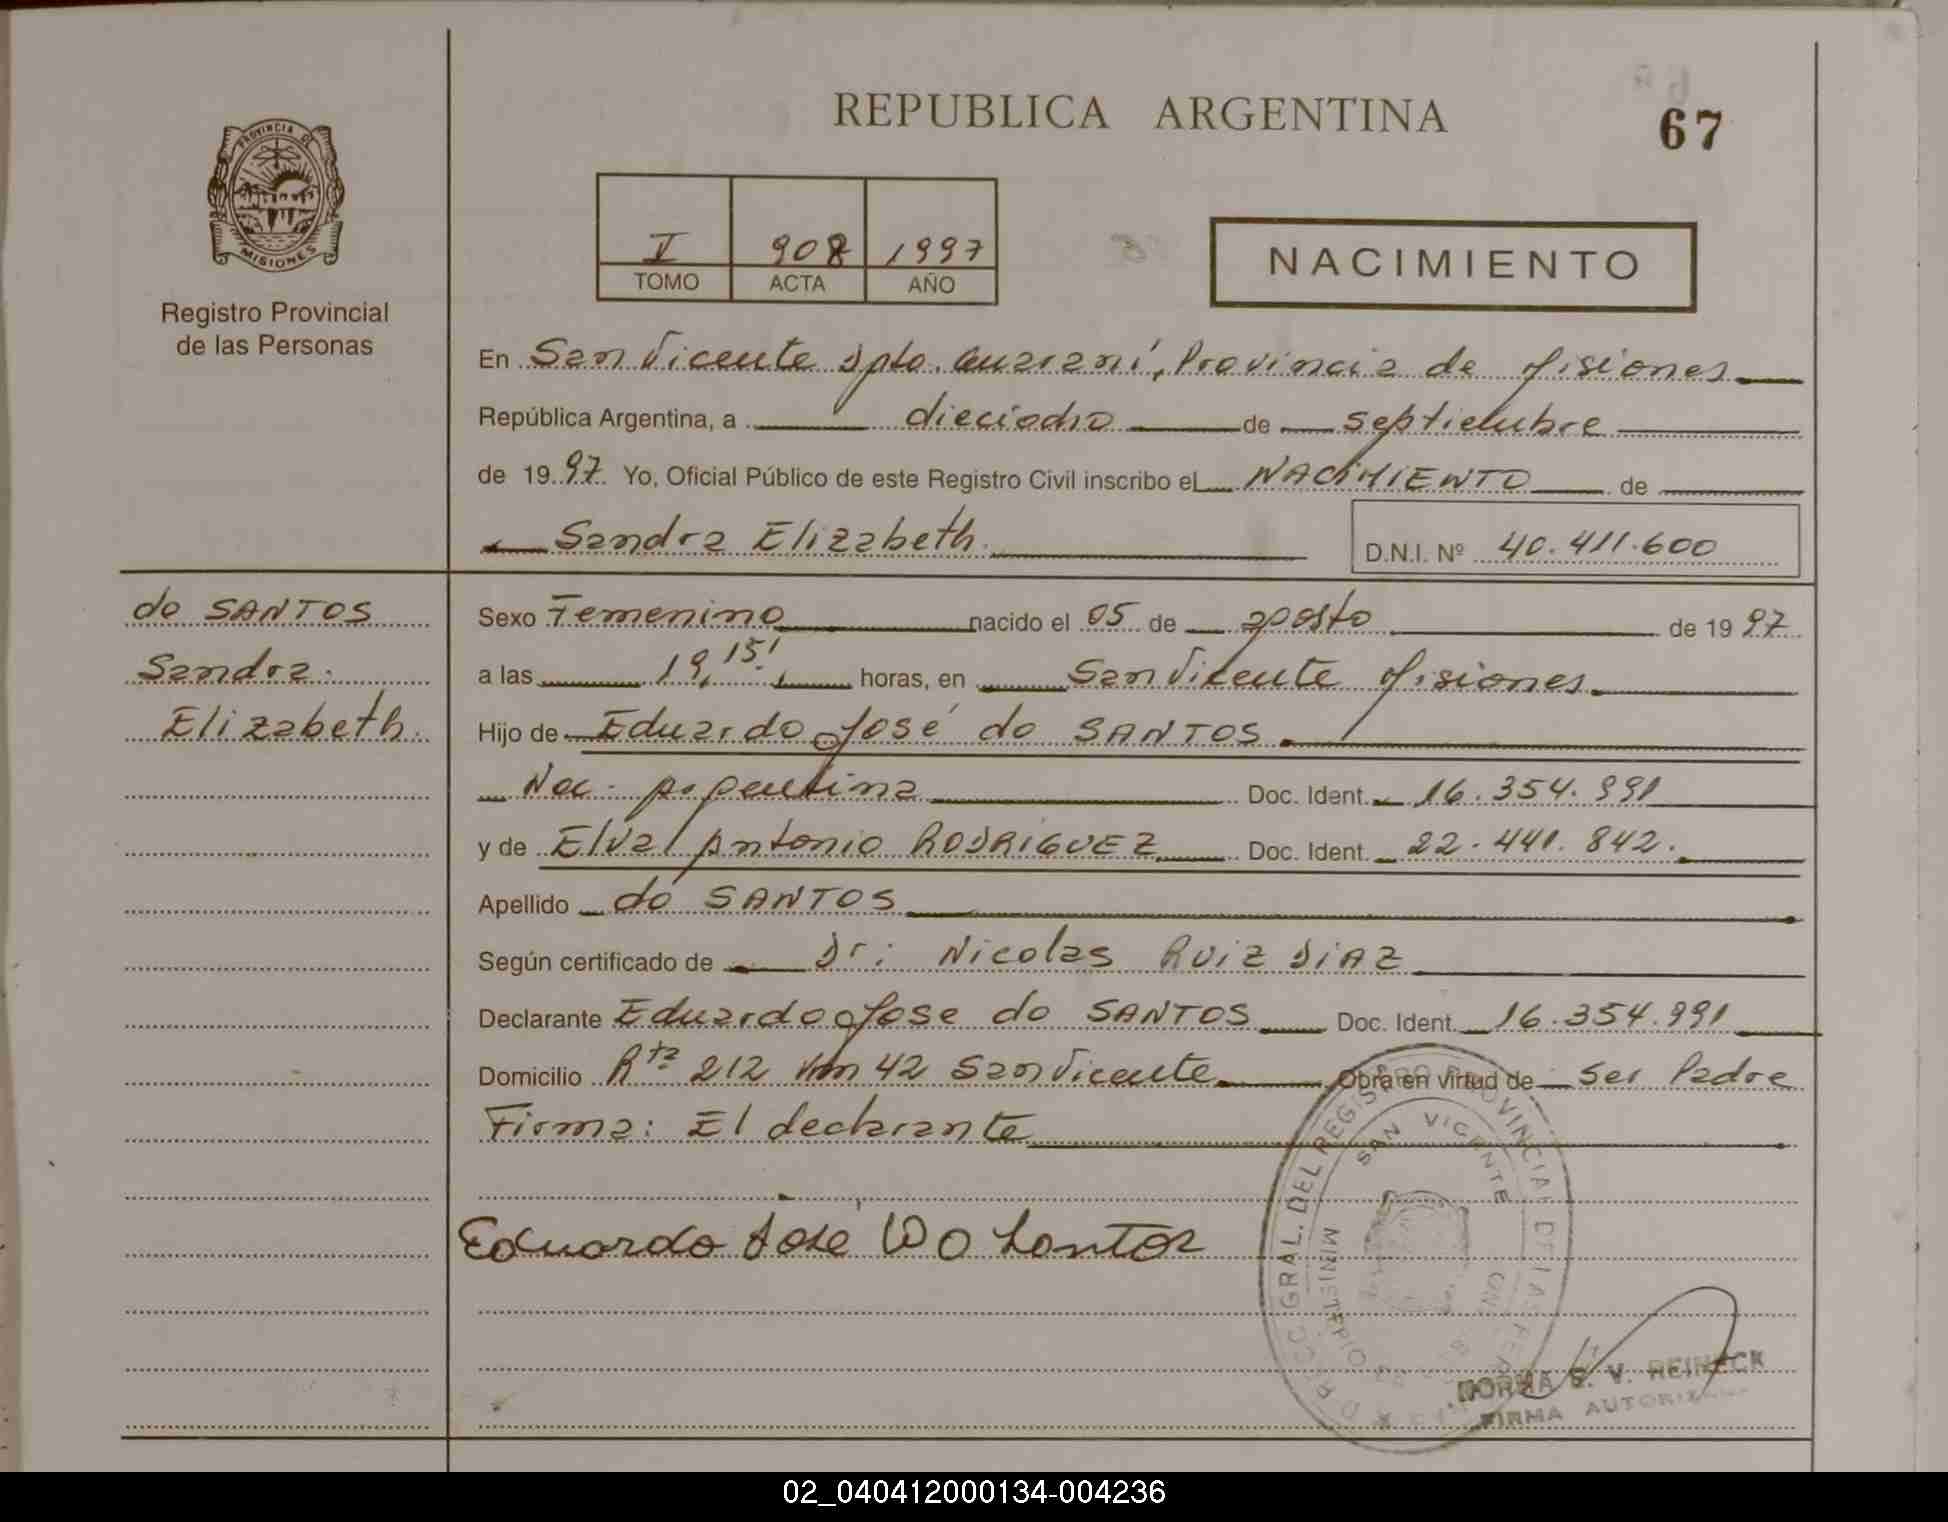 REPUBLICA ARGENTINA
67
PROVINCIA DE
MISIONES
Registro Provincial
de las Personas
I 908 1997
TOMO ACTA AÑO
NACIMIENTO
En San Vicente Dpto. Guaraní, Provincia de Misiones
República Argentina, a dieciocho de septiembre
de 1997 Yo, Oficial Público de este Registro Civil inscribo el NACIMIENTO de
Sandra Elizabeth. D.N.I. Nº 40.411.600
do SANTOS
Sandra
Elizabeth.
Sexo Femenino nacido el 05 de agosto de 1997
a las 19,15' horas, en San Vicente Misiones
Hijo de Eduardo José do SANTOS
Nac. Argentina Doc. Ident. 16.354.991
y de Elva Antonio RODRIGUEZ Doc. Ident. 22.441.842.
Apellido do SANTOS
Según certificado de Dr: Nicolas RUIZ DIAZ
Declarante Eduardo Jose do SANTOS Doc. Ident. 16.354.991
Domicilio Rta 212 km 42 San Vicente Obra en virtud de ser Padre
Firma: El declarante
Eduardo José Do Santos
GRAL. DEL REGISTRO PROVINCIAL DE LAS PER
SAN VICENTE
MINISTERIO
NORMA E. V. REINECK
FIRMA AUTORIZ
02_040412000134-004236